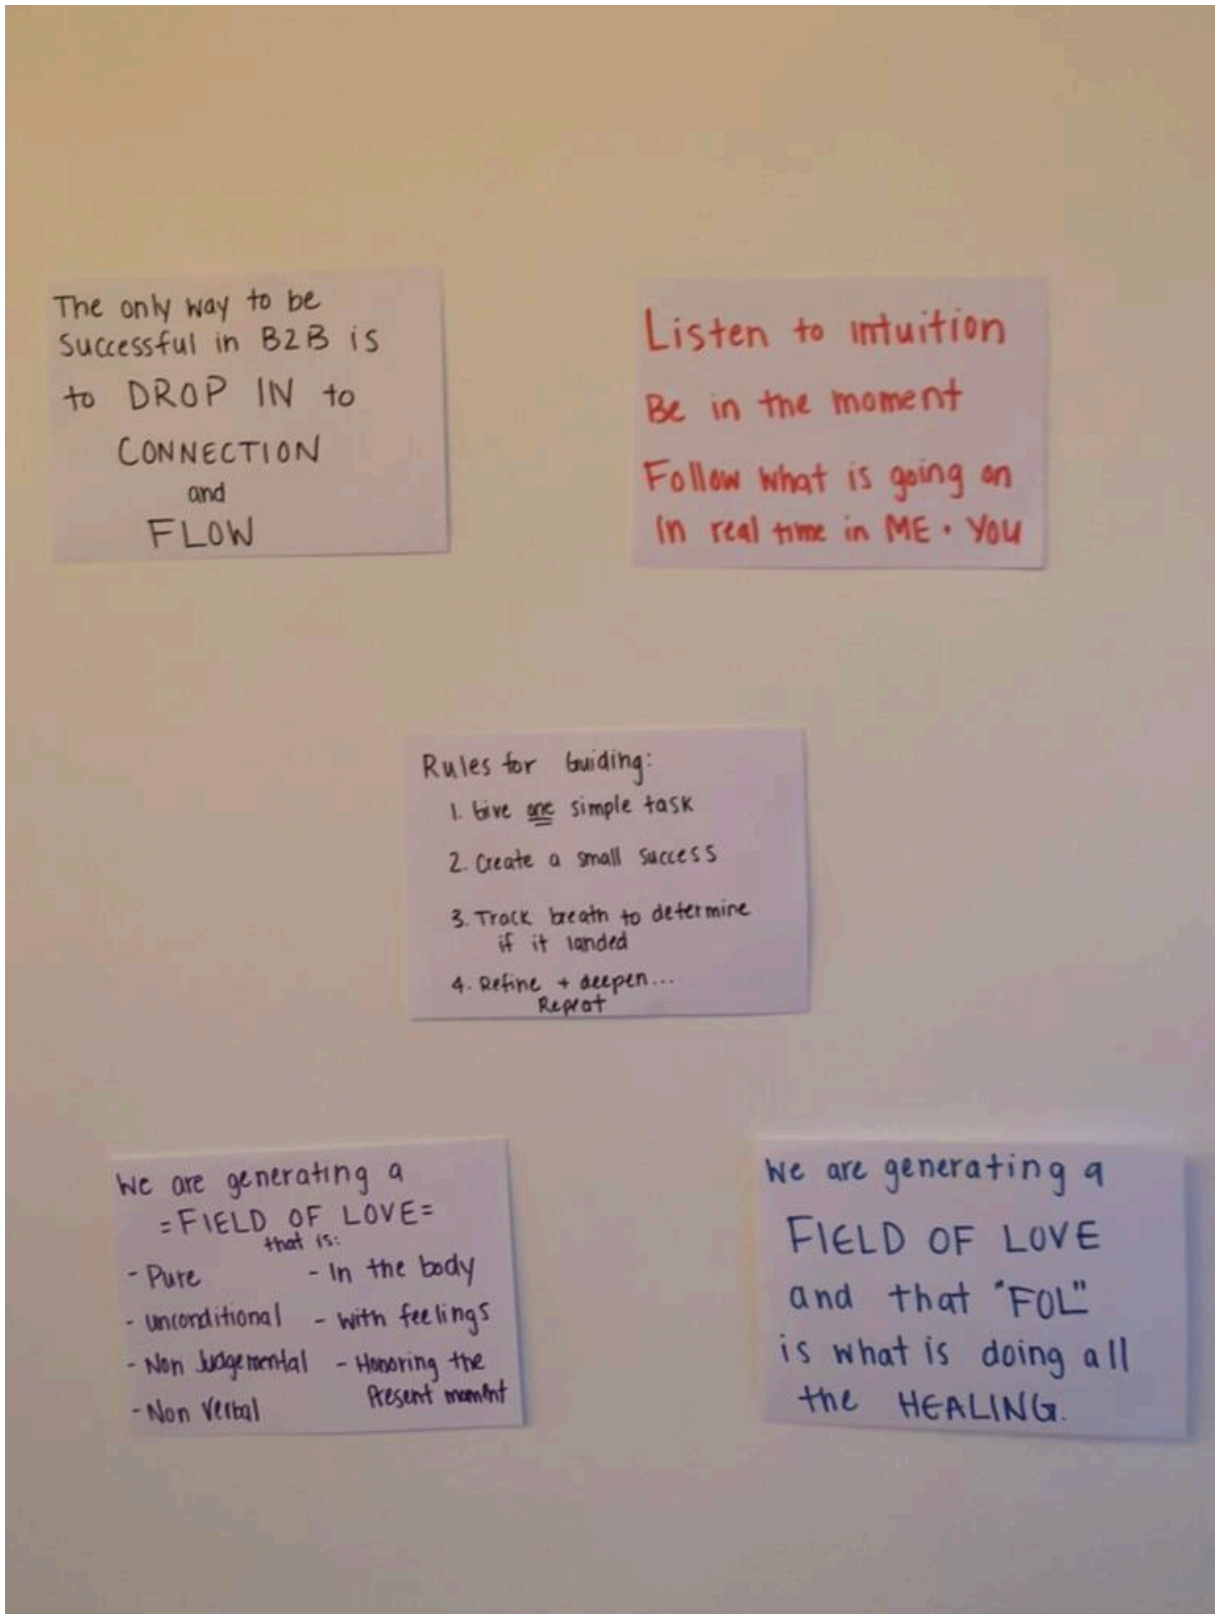 The only way to be
Successful in B2B is
to DROP IN to
CONNECTION
and
FLOW
Listen to intuition
Be in the moment
Follow what is going on
in real time in ME • YOU
Rules for Guiding:
1. Give one simple task
2. Create a small success
3. Track breath to determine
if it landed
4. Refine + deepen...
Repeat
We are generating a
=FIELD OF LOVE=
that is:
- Pure
- unconditional
- Non Judgemental
- Non Verbal
- In the body
- with feelings
- Honoring the
Present moment
We are generating a
FIELD OF LOVE
and that "FOL"
is what is doing all
the HEALING.